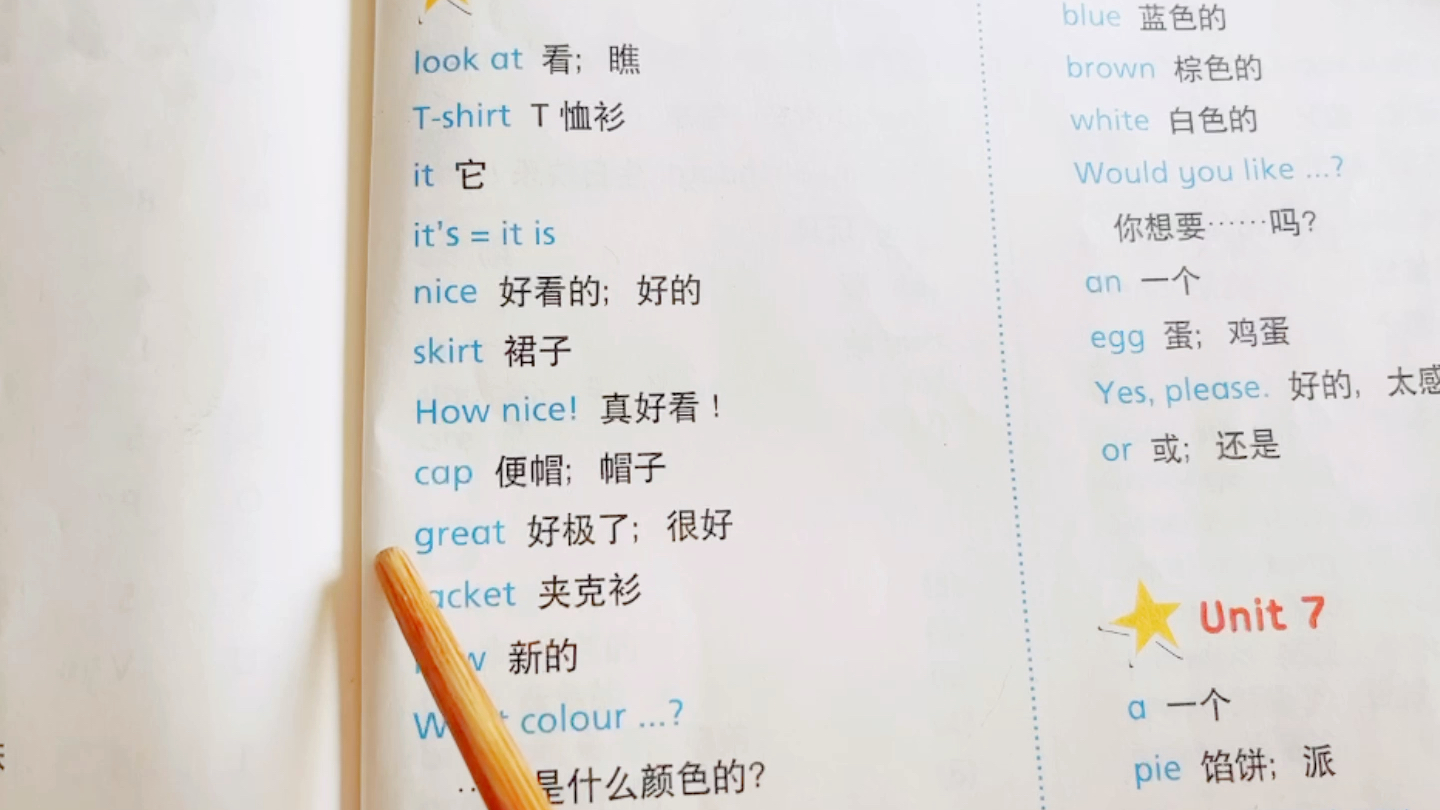 look at 看; 瞧
T-shirt T 恤衫
it 它
it's = it is
nice 好看的; 好的
skirt 裙子
How nice! 真好看！
cap 便帽; 帽子
great 好极了; 很好
acket 夹克衫
w 新的
colour ...?
是什么颜色的?
blue 蓝色的
brown 棕色的
white 白色的
Would you like ...?
你想要……吗?
an 一个
egg 蛋; 鸡蛋
Yes, please. 好的, 太感
or 或; 还是
Unit 7
a 一个
pie 馅饼; 派